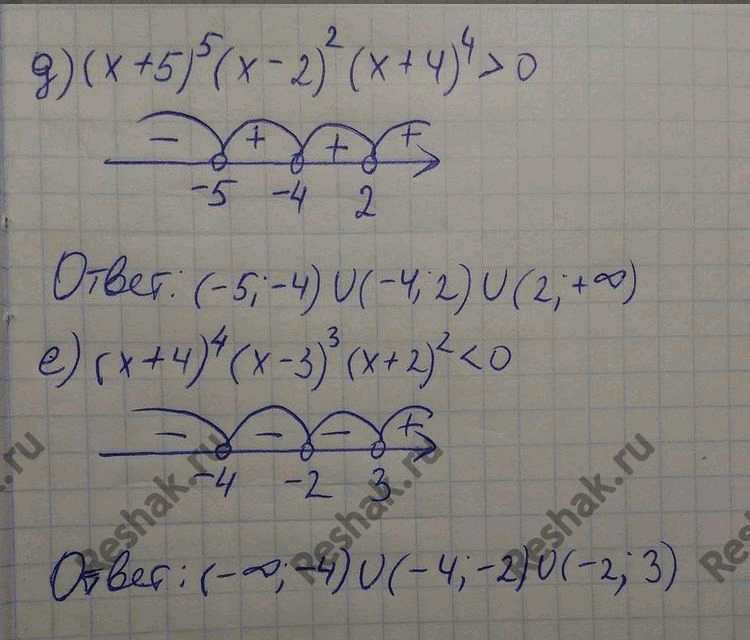 д) (x+5)⁵(x-2)²(x+4)⁴>0
- + + +
-5 -4 2
Ответ: (-5;-4)∪(-4;2)∪(2;+∞)
е) (x+4)⁴(x-3)³(x+2)²<0
- - - +
-4 -2 3
Ответ: (-∞;-4)∪(-4;-2)∪(-2;3)
Reshak.ru
Reshak.ru
Reshak.ru